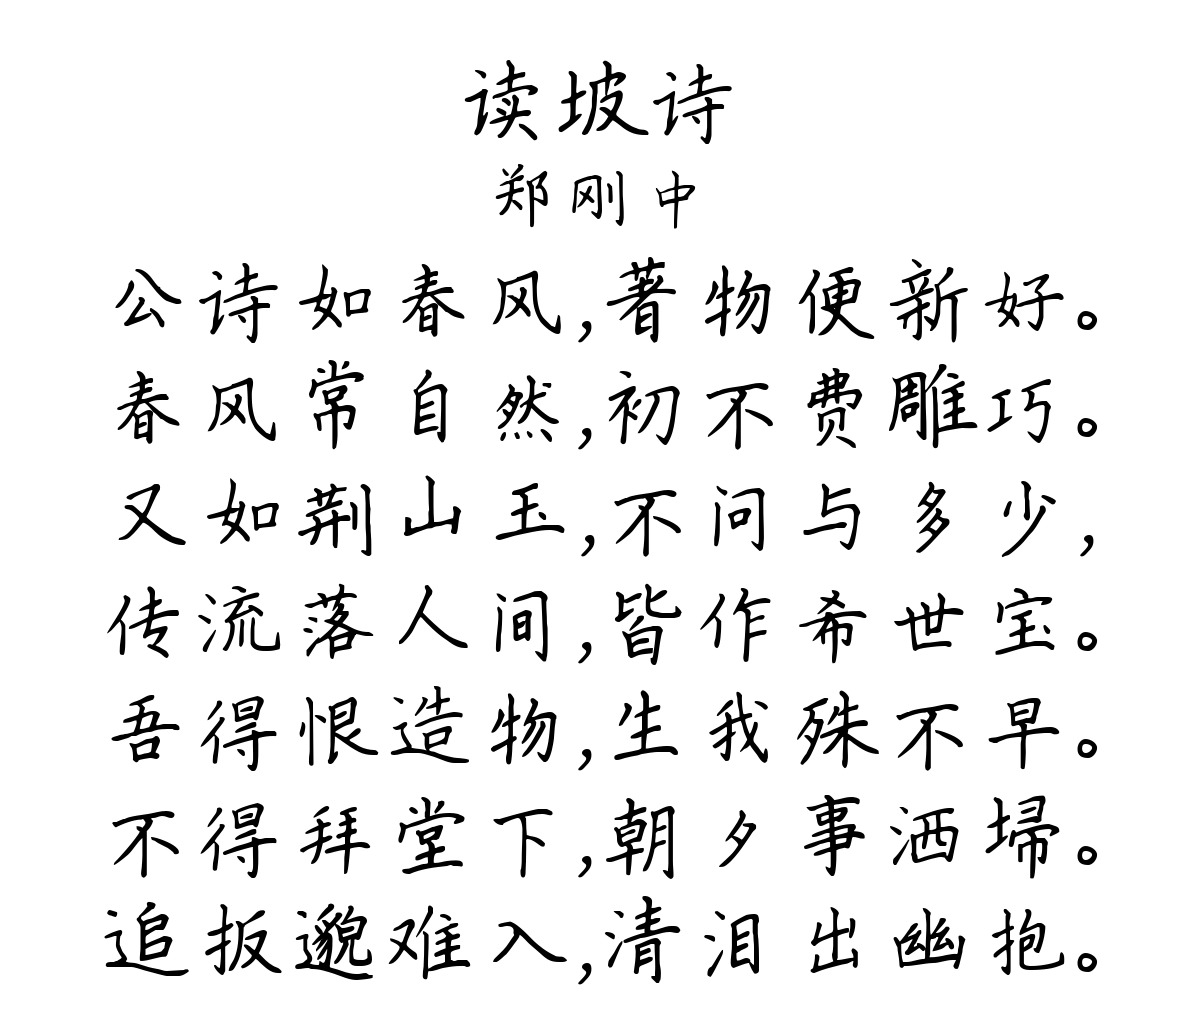 读坡诗
郑刚中
公诗如春风,著物便新好。
春风常自然,初不费雕巧。
又如荆山玉,不问与多少,
传流落人间,皆作希世宝。
吾得恨造物,生我殊不早。
不得拜堂下,朝夕事洒埽。
追扳邈难入,清泪出幽抱。